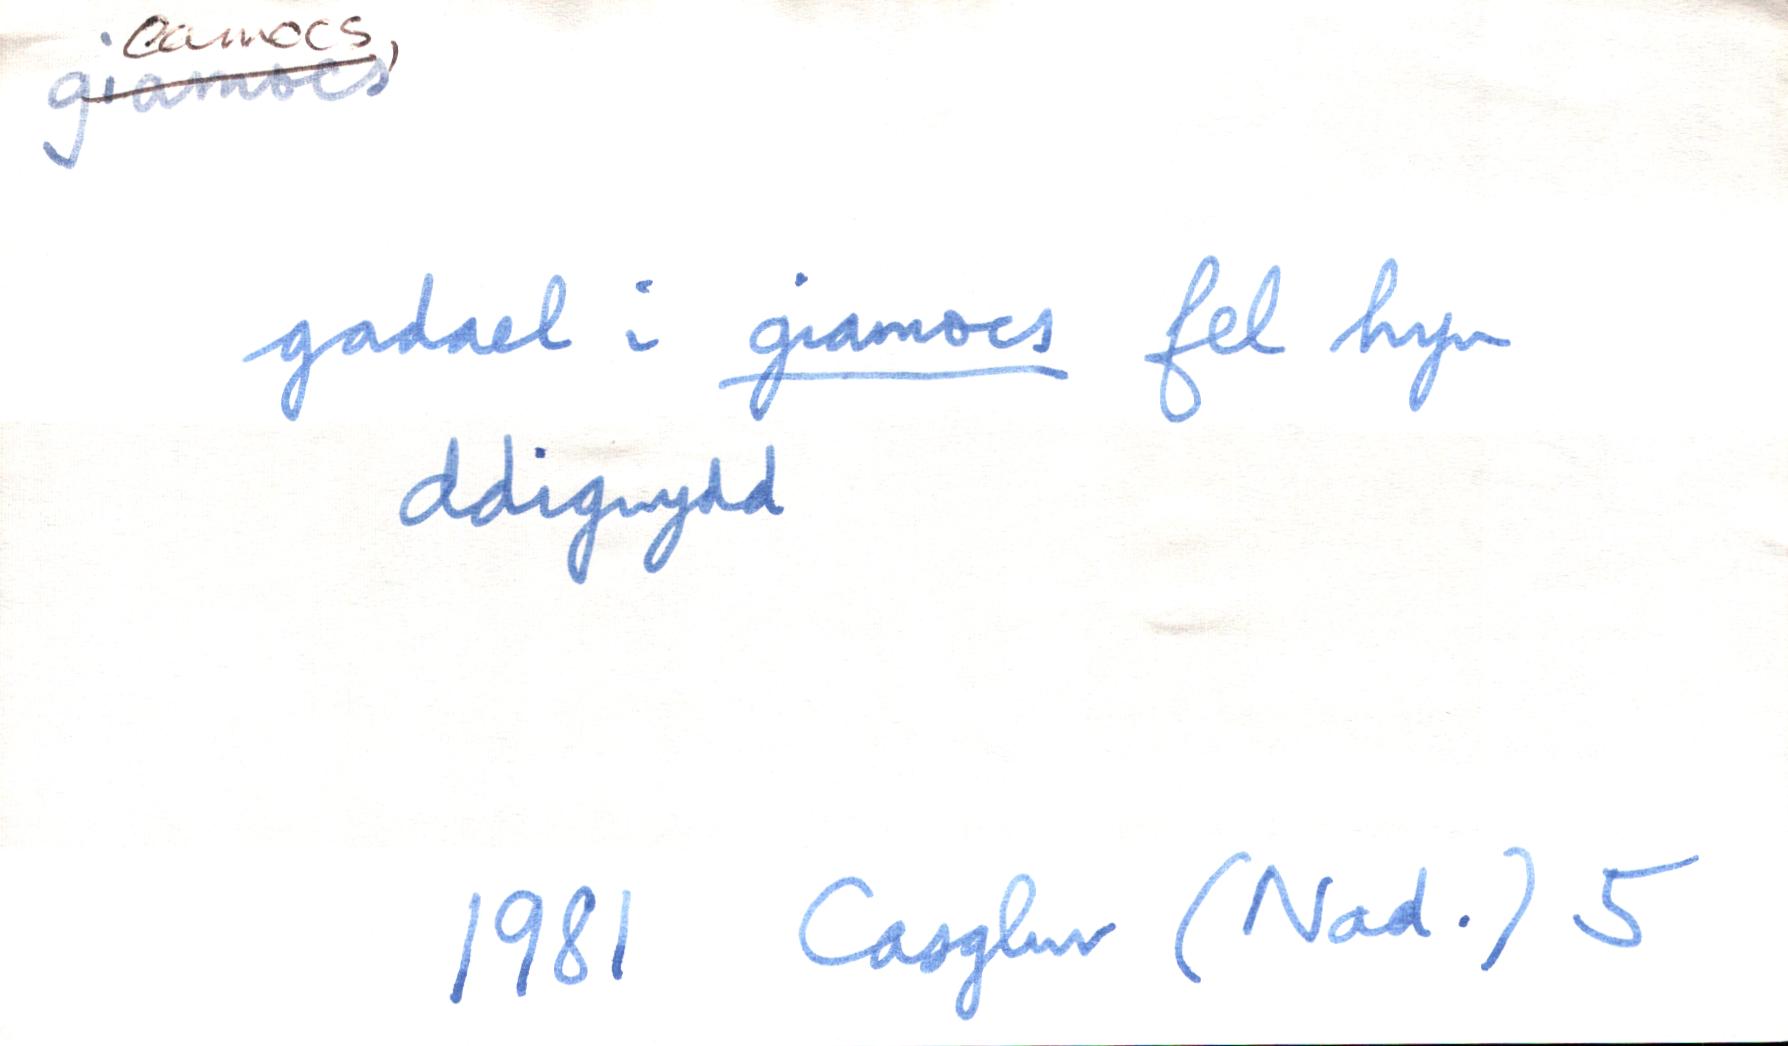 camocs,
giamocs
gadael i giamocs fel hyn
ddigwydd
1981 Casglwr (Nad.) 5